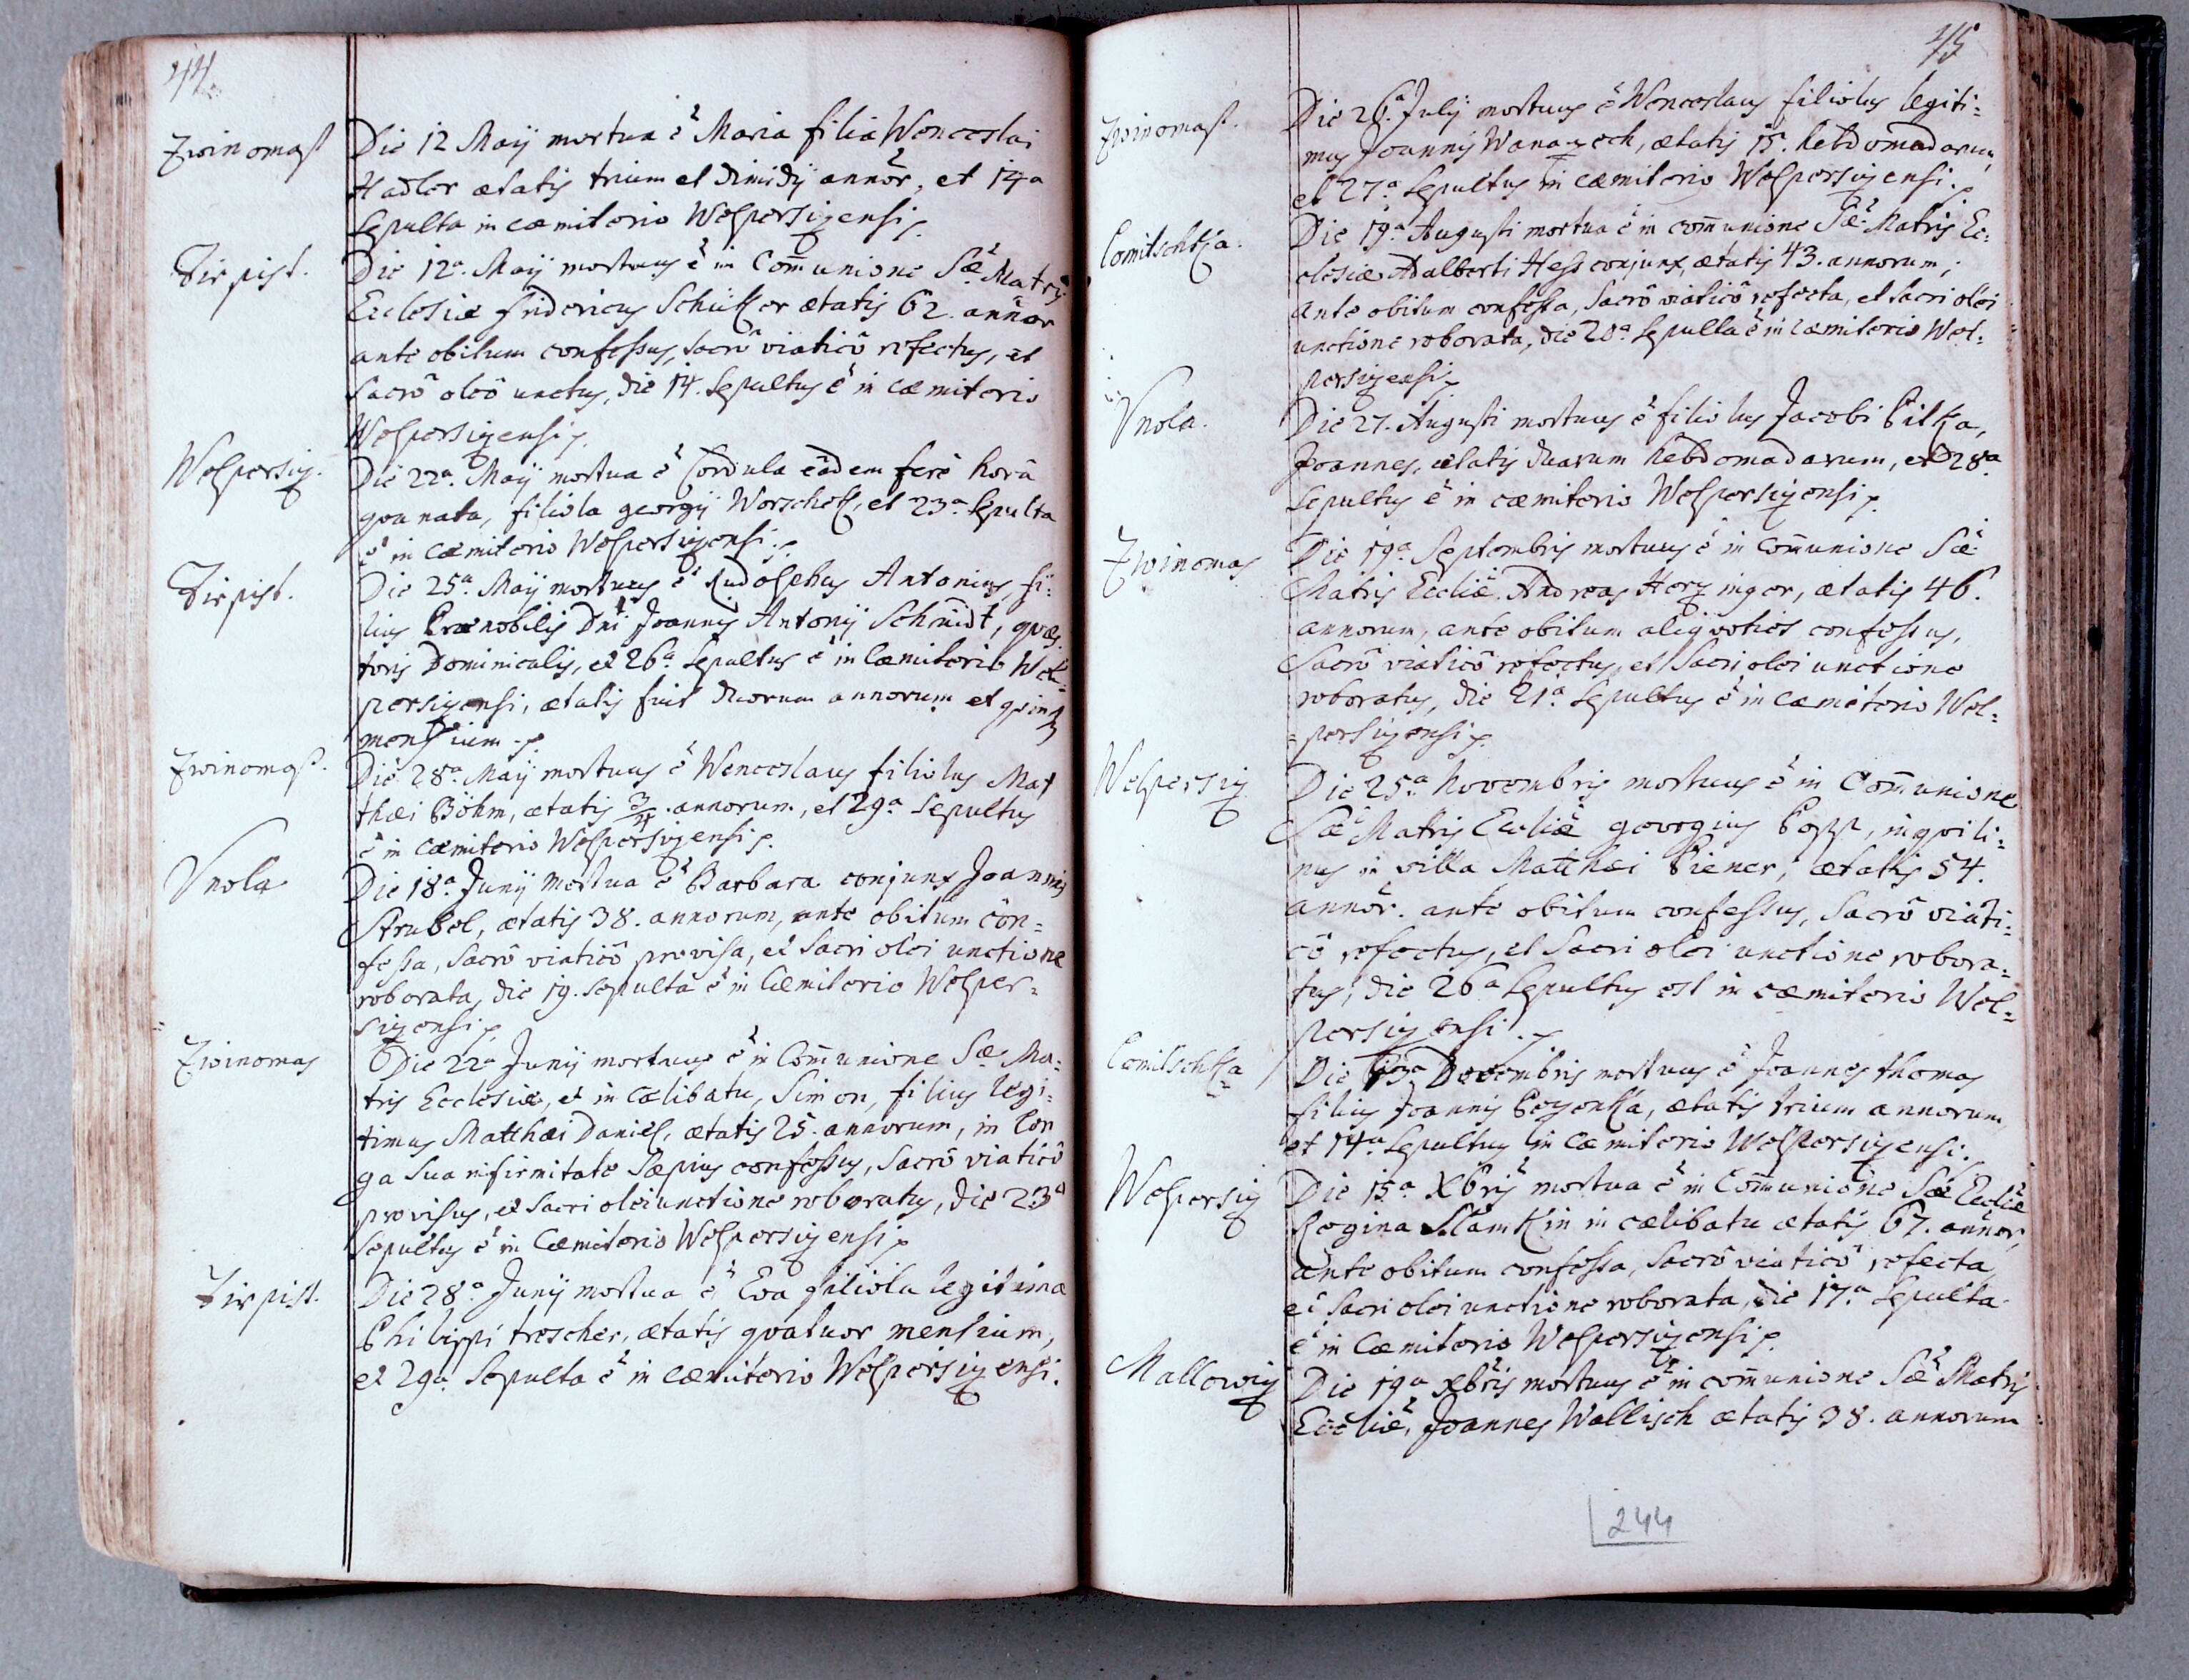 44.
Zwinomaß
Die 12 Maÿ mortua ē Maria filia Wenceslai
Hadler ætatis trium et dimidÿ annōr, et 14a
sepulta in cæmiterio Welpersizensi
Tirpist.
Die 12a. Maÿ mortuus ē in Com̄unione Sæ Matris
Ecclesiæ Fridericus Schütker ætatis 62. annōr
ante obitum confessus, sacrô viaticô refectus, et
sacrô oleô unctus, die 14. sepultus ē in cæmiterio
Welpersizensi.
Welpersiz.
Die 22a. Maÿ mortua ē Cordula eâdem ferè horâ
qua nata, filiola georgÿ Worschek, et 23a. sepulta
ē in Cæmiterio Welpersizensi.
Tirpist.
Die 25a. Maÿ mortuus ē Rudolphus Antonius, fi:
lius Prænobilis Dni Joannis Antonÿ Schmidt, quæs
toris Dominicalis, et 26a. sepultus ē in Cæmiterio Wel=
persizensi, ætatis fuit duorum annorum et
mensium.
Zwinomaß.
Die 28a. Maÿ mortuus ē Wenceslaus filiolus Mat
thæi Böhm, ætatis 3/4. annorum, et 29a sepultus
ē in cæmiterio Welpersizensi.
Vnola
Die 18a. Junÿ mortua ē Barbara conjunx Joannis
Strubel, ætatis 38. annorum, ante obitum con=
fessa, sacrô viaticô provisa, et sacri olei unctione
roborata, die 19. sepulta ē in Cæmiterio Welper=
sizensi.
Zwinomas
Die 22a Junÿ mortuus ē in Com̄unione Sæ Ma=
tris Ecclesiæ, et in cælibatu, Simon, filius legi=
timus Matthæi Daniel, ætatis 25. annorum, in lon
ga sua infirmitate sæpius confessus, sacrô viaticô
provisus, et sacri olei unctione roboratus, die 23a
sepultus ē in Cæmiterio Welpersizensi.
Tirpist.
Die 28a. Junÿ mortua ē Eva filiola legitima
Philippi trescher, ætatis quatuor mensium,
et 29a. sepulta ē in cæmiterio Welpersizensi.
45
Zwinomaß.
Die 26a. Julÿ mortuus ē Wenceslaus filiolus legiti=
mus Joannis Wanazech, ætatis 15. hebdomadarum,
et 27a. sepultus in cæmiterio Welpersizensi.
Comitschka.
Die 19a. Augusti mortua ē in com̄unione Sæ. Matris Ec=
clesiæ Adalberti Hess conjunx, ætatis 43. annorum,
ante obitum confessa, sacrô viaticô refecta, et sacri olei
unctione roborata, die 20a. sepulta ē in cæmiterio Wel=
persizensi.
Vnola.
Die 27. Augusti mortuus ē filiolus Jacobi Pilka,
Joannes, ætatis duarum hebdomadarum, et 28a.
sepultus ē in cæmiterio Welpersizensi.
Zwinomas
Die 19a. Septembris mortuus ē in com̄unione Sæ
Matris Eccliæ. Andreas Herzinger, ætatis 46.
annorum, ante obitum aliquoties confessus,
sacrô viaticô refectus, et sacri olei unctione
roboratus, die 21a. sepultus ē in cæmiterio Wel=
=persizensi.
Welpersiz
Die 25a. Novembris mortuus ē in Com̄unione
Sæ Matris Eccliæ georgius Popp, inquili=
nus in villa Matthæi Piener, ætatis 54.
annōr. ante obitum confessus, sacrô viati=
cô refectus, et sacri olei unctione robora=
tus, die 26a sepultus est in cæmiterio Wel=
persizensi.
Comitschka
Die 13a Decembris mortuus ē Joannes thomas
filius Joannis Pezenka, ætatis trium annorum
et 14a. sepultus in cæmiterio Welpersizensi.
Welpersiz
Die 15a Xbris mortua ē in Com̄unione Sæ Eccliæ
Regina Slamkin in cælibatu ætatis 67. annōr,
ante obitum confessa, sacrô viaticô refecta,
et sacri olei unctione roborata, die 17a. sepulta
ē in Cæmiterio Welpersizensi.
Mallowiz
Die 19a Xbris mortuus ē in com̄unione Sæ Matris
Eccliæ, Joannes Wallisch ætatis 38. annorum
244